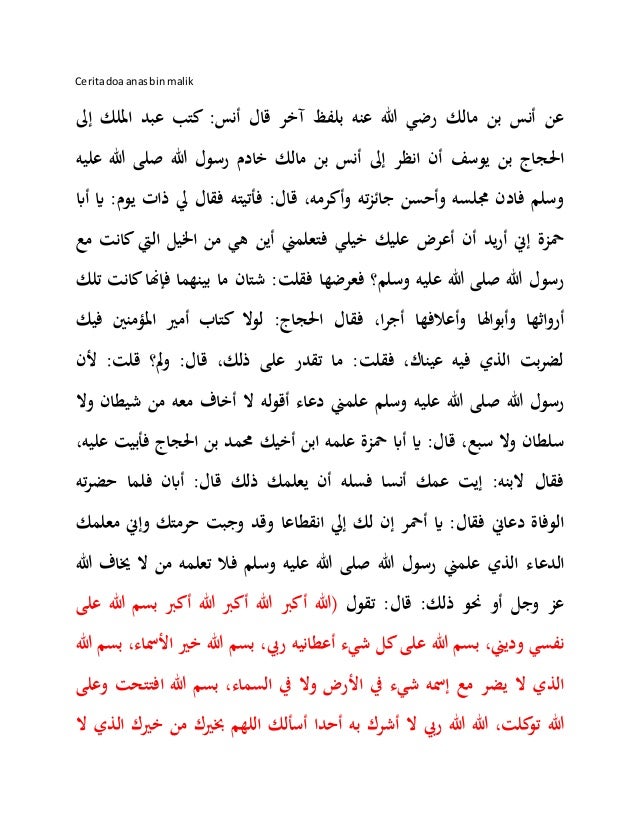 Cerita doa anas bin malik
عن أنس بن مالك رضي الله عنه بلفظ آخر قال أنس: كتب عبد الملك إلى
الحجاج بن يوسف أن انظر إلى أنس بن مالك خادم رسول الله صلى الله عليه
وسلم فادن مجلسه وأحسن جائزته وأكرمه، قال: فأتيته فقال لي ذات يوم: يا أبا
حمزة إني أريد أن أعرض عليك خيلي فتعلمني أين هي من الخيل التي كانت مع
رسول الله صلى الله عليه وسلم؟ فعرضها فقلت: شتان ما بينهما فإنها كانت تلك
أرواثها وأبوالها وأعلافها أجرا، فقال الحجاج: لولا كتاب أمير المؤمنين فيك
لضربت الذي فيه عيناك، فقلت: ما تقدر على ذلك، قال: ولم؟ قلت: لأن
رسول الله صلى الله عليه وسلم علمني دعاء أقوله لا أخاف معه من شيطان ولا
سلطان ولا سبع، قال: يا أبا حمزة علمه ابن أخيك محمد بن الحجاج فأبيت عليه،
فقال لابنه: إيت عمك أنسا فسله أن يعلمك ذلك قال: أبان فلما حضرته
الوفاة دعاني فقال: يا أحمر إن لك إلي انقطاعا وقد وجبت حرمتك وإني معلمك
الدعاء الذي علمني رسول الله صلى الله عليه وسلم فلا تعلمه من لا يخاف الله
عز وجل أو نحو ذلك: قال: تقول (الله أكبر الله أكبر الله أكبر بسم الله على
نفسي وديني، بسم الله على كل شيء أعطانيه ربي، بسم الله خير الأسماء، بسم الله
الذي لا يضر مع إسمه شيء في الأرض ولا في السماء، بسم الله افتتحت وعلى
الله توكلت، الله الله ربي لا أشرك به أحدا أسألك اللهم بخيرك من خيرك الذي لا